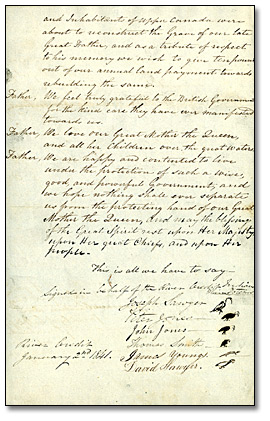 and Inhabitants of upper Canada were
about to reconstruct the Grave of our late
Great Father, and as a tribute of respect
to his memory we wish to give ten pounds
out of our annual land payment towards
rebuilding the same.
Father, We feel truly grateful to the British Government
for the kind care they have ever manifested
towards us.
Father, We love our Great Mother the Queen,
and all her Children over the great waters
Father, We are happy and contented to love
under the protection of such a wise,
good, and powerful Government; and
we hope nothing Shall ever separate
us from the protecting hand of our Great
Mother the Queen, And may the blessing
of the Great Spirit rest upon Her Majesty
upon Her great Chiefs, and upon Her
people.
This is all we have to say
Signed in behalf of the River Credit Indians
Joseph Sawyer
Peter Jones
John Jones
River Credit Thomas Smith
January 2nd 1841. James Young
David Sawyer.